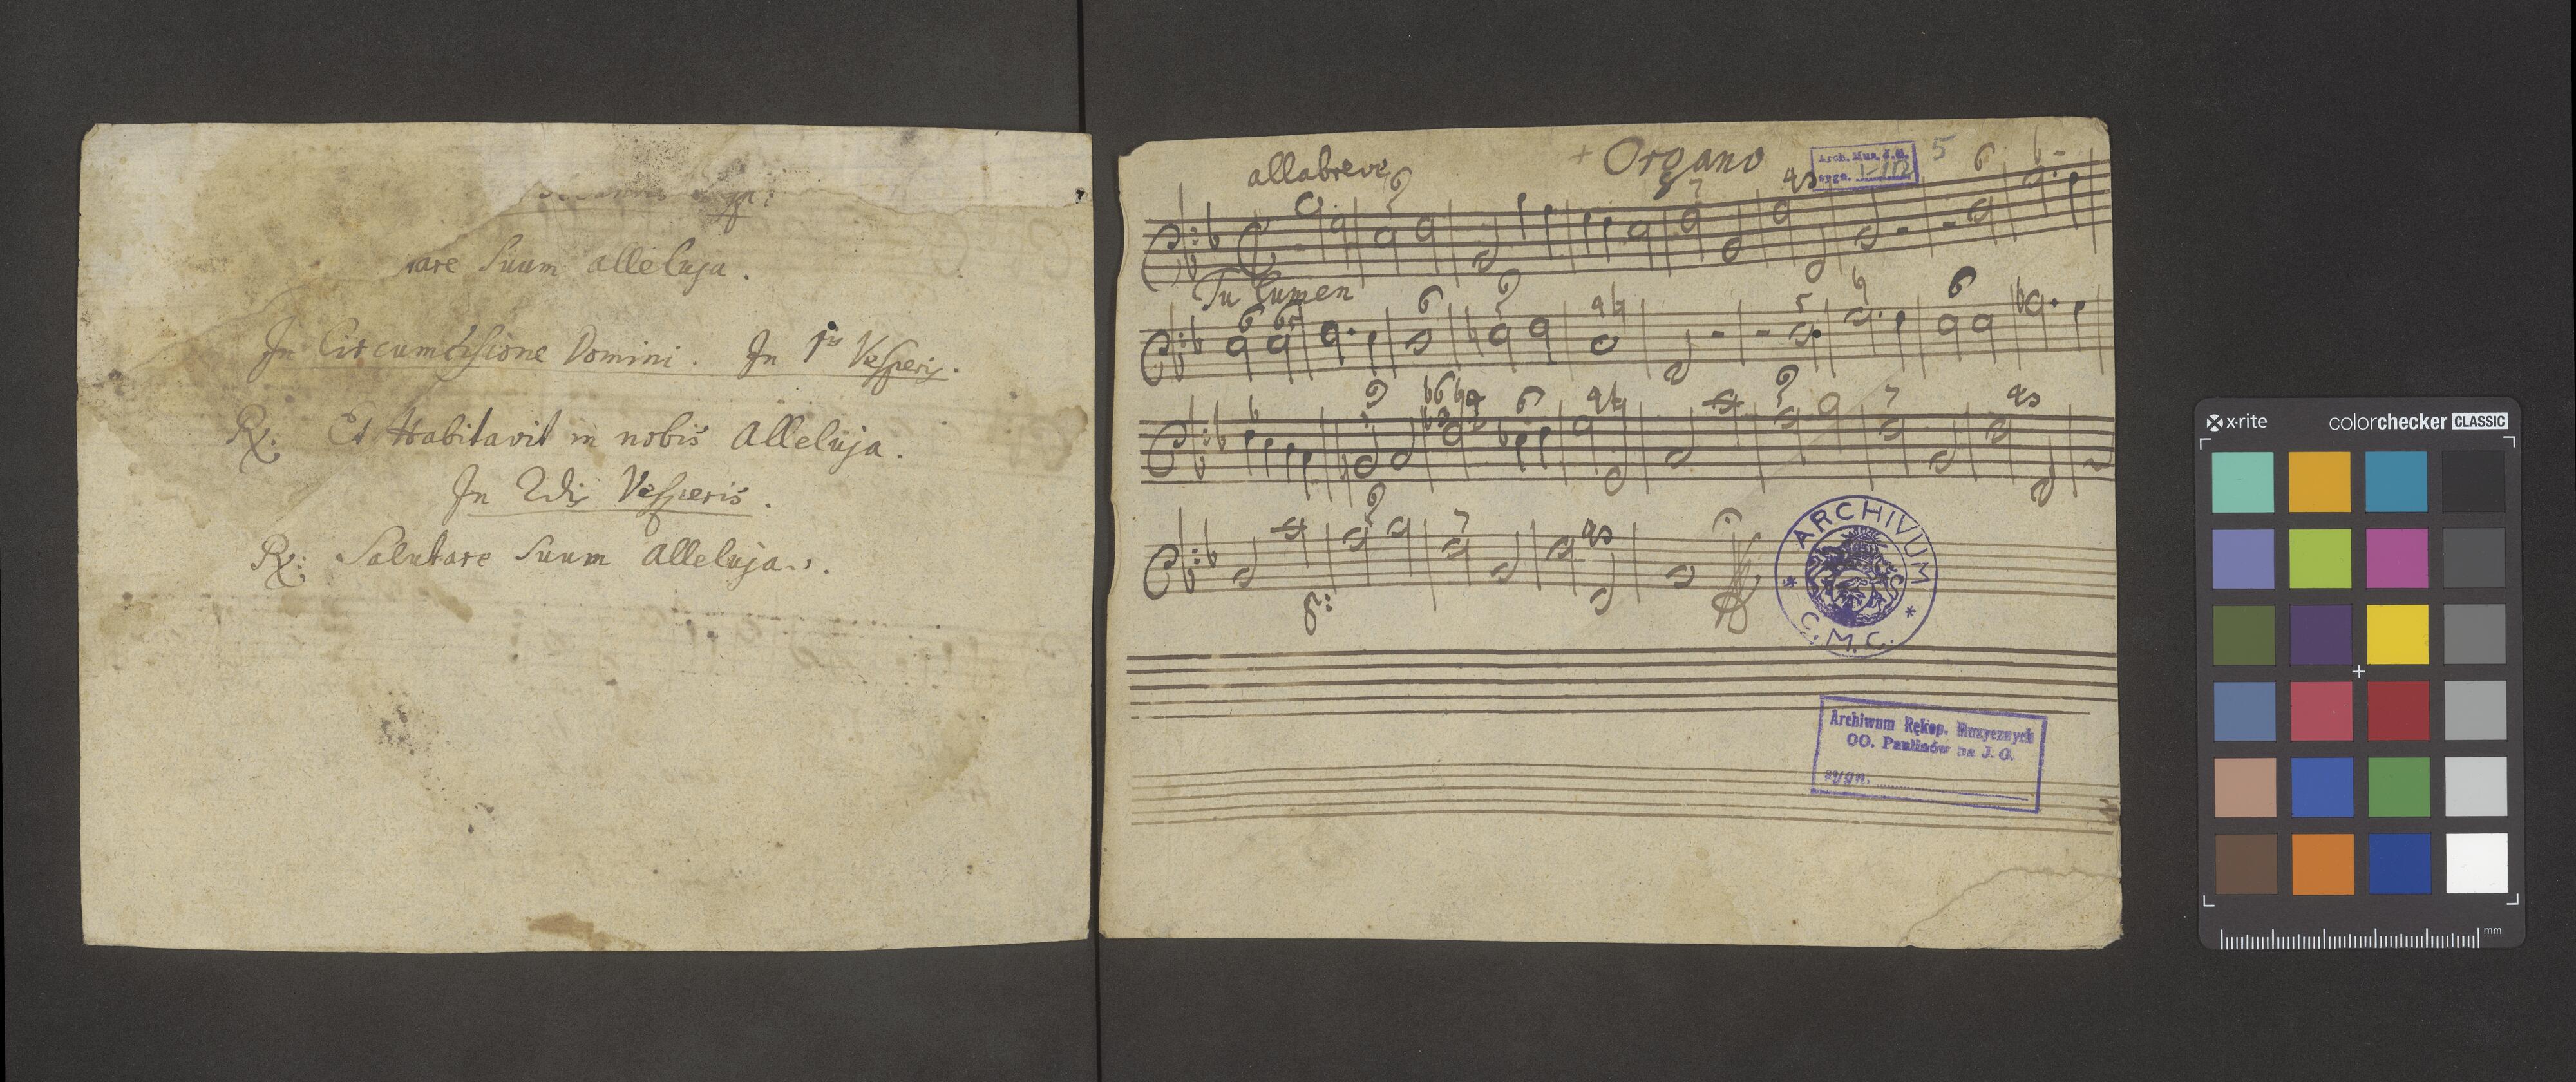 are Suum alleluja.
In Circumcisione Domini. In 1is Vesperis.
R: Et Habitavit in nobis Alleluja.
In 2dis Vesperis.
R: Salutare Suum Alleluja.
+ Organo
5
Arch. Muz. J. G.
sygn.
allabreve
Tu Lumen
ARCHIVUM
C. M. C.
Archiwum Rękop. Muzycznych
OO. Paulinów na J. G.
sygn.
x·rite colorchecker CLASSIC
mm